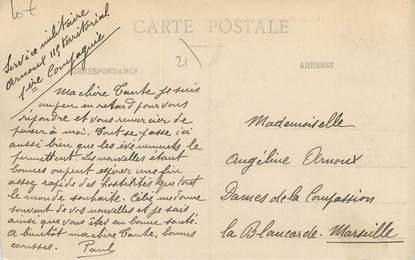 CARTE POSTALE
CORRESPONDANCE
ADRESSE
21
Service militaire
Arnoux 115 territorial
1ère Compagnie
Ma chère Tante je suis
un peu en retard pour vous
répondre et vous remercier de
penser à moi. Tout se passe ici
aussi bien que les événements le
permettent. Les nouvelles étant
bonnes on peut espérer une fin
assez rapide des hostilités que tout
le monde souhaite. Célie me donne
souvent de vos nouvelles et je sais
ainsi que vous êtes en bonne santé.
A bientôt ma chère Tante, bonnes
caresses. Paul
Mademoiselle
Angéline Arnoux
Dames de la Compassion
la Blancarde. Marseille